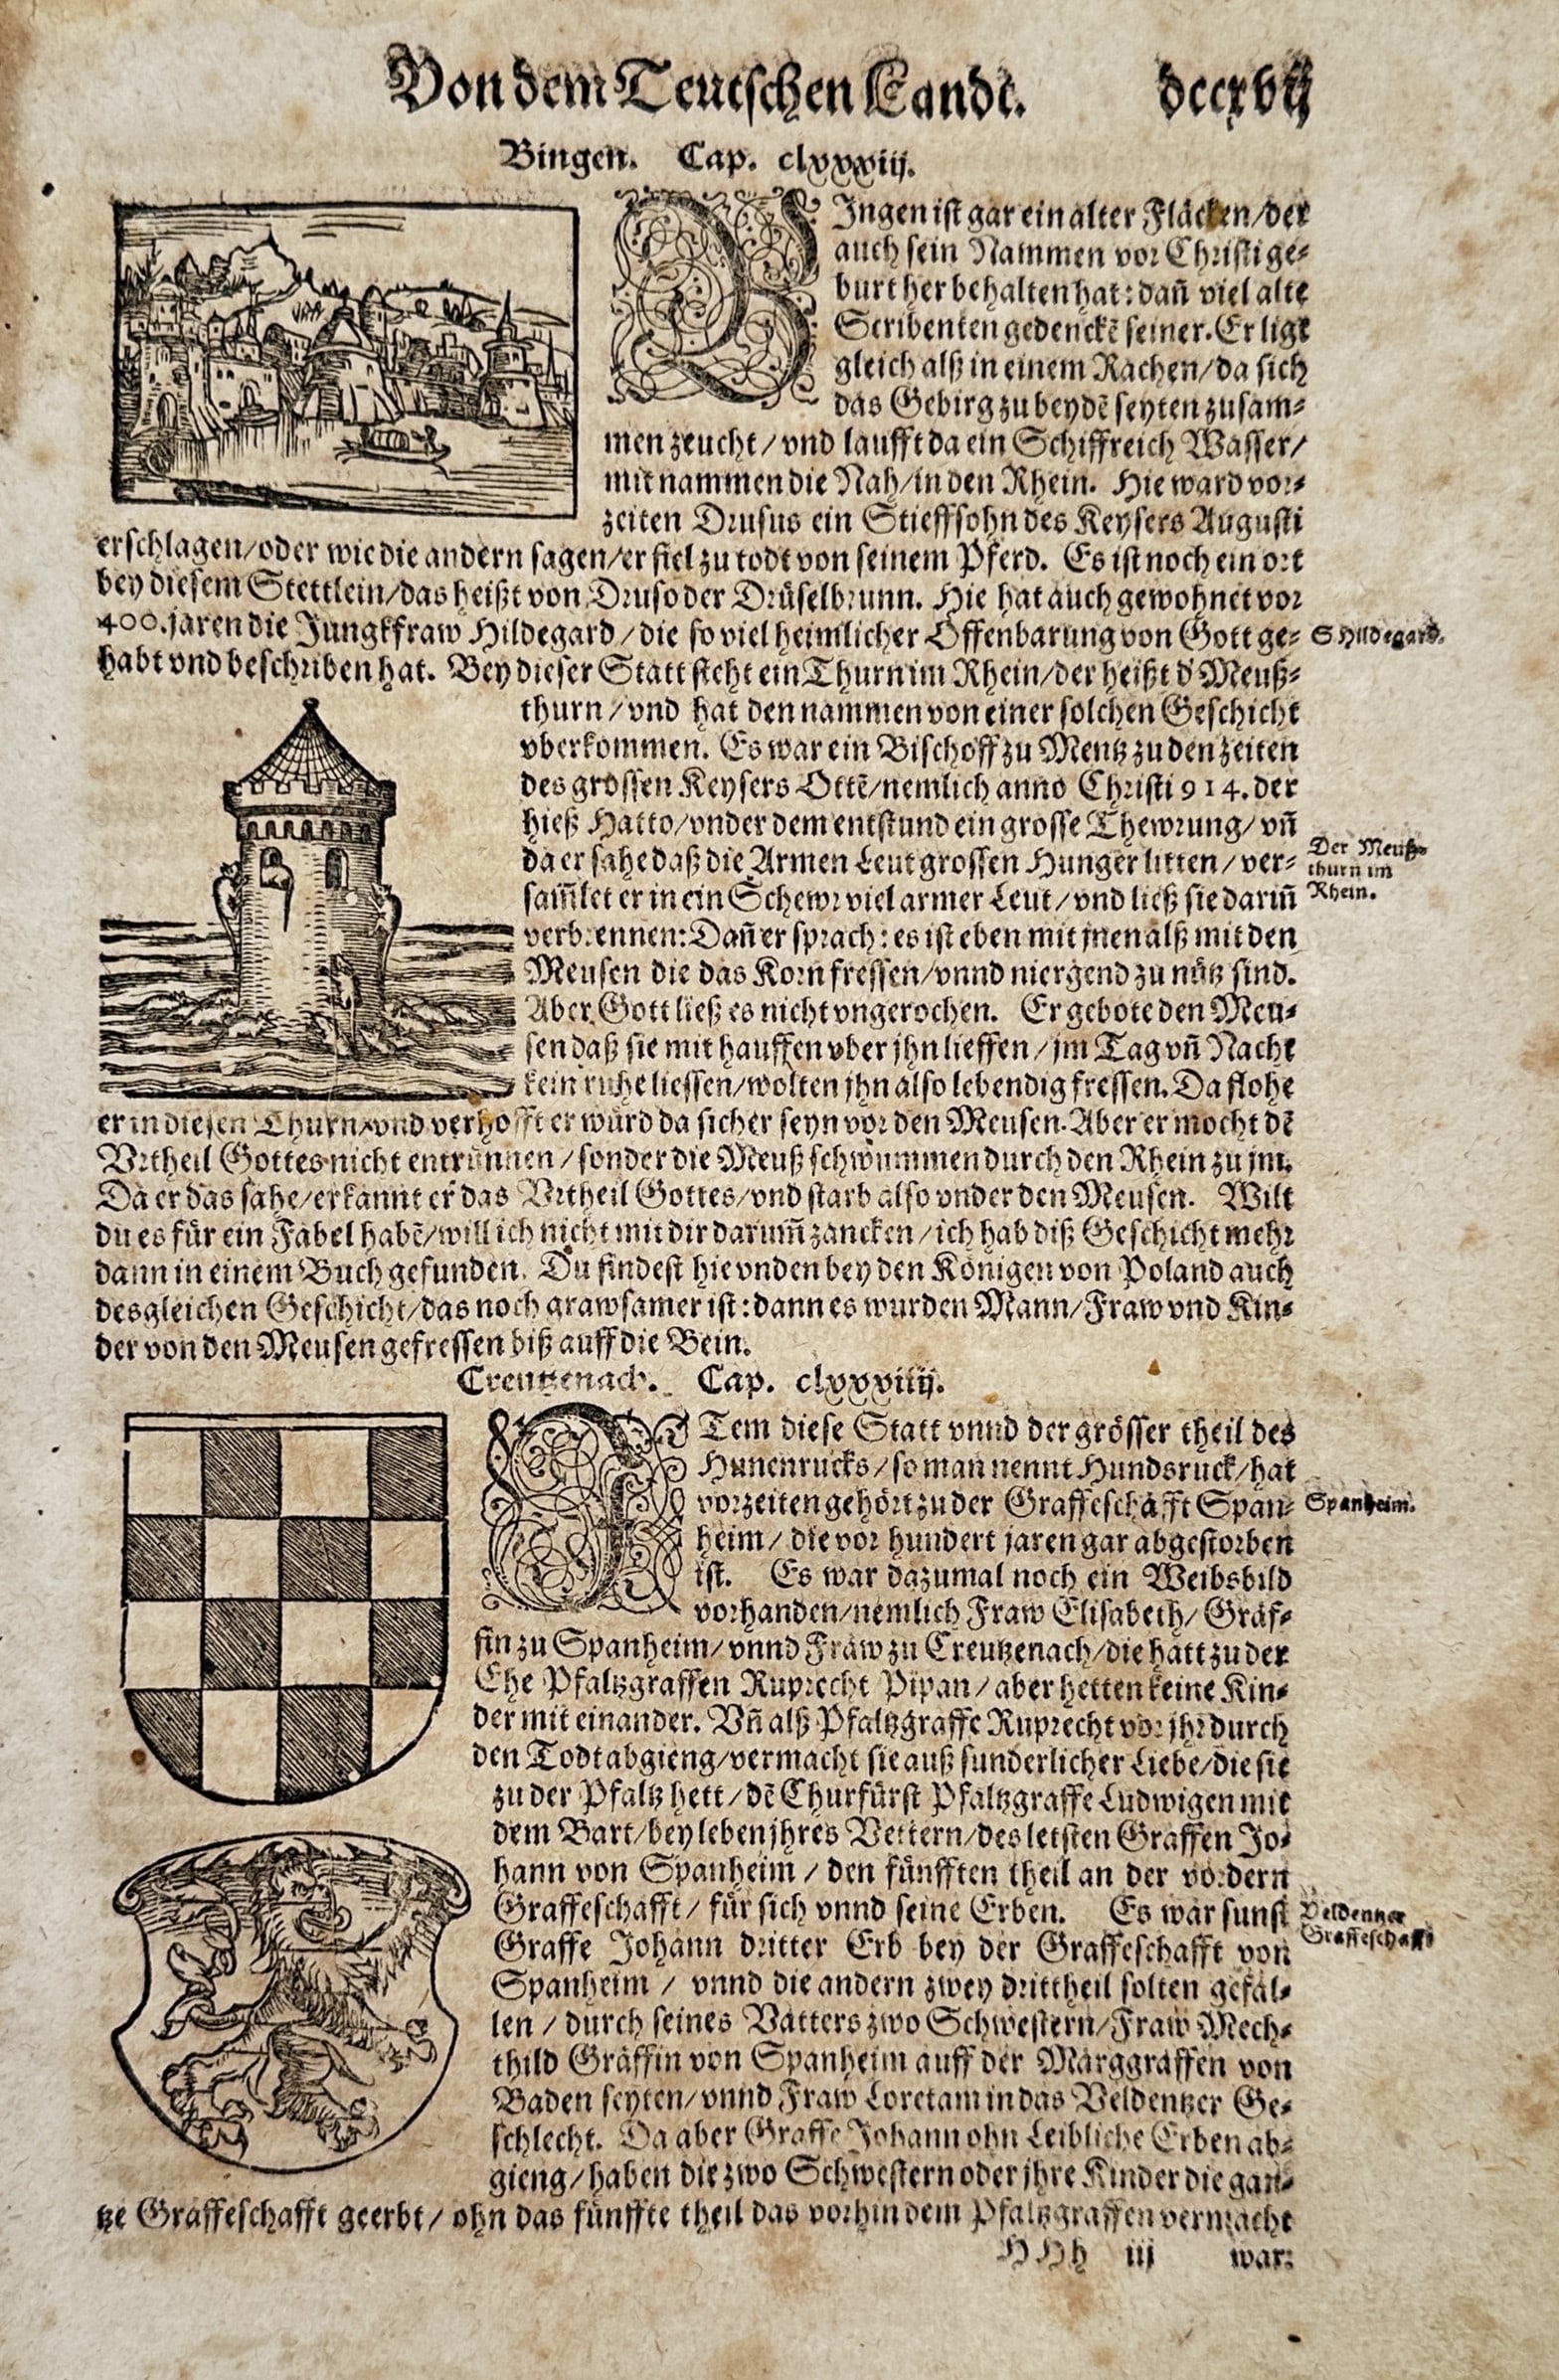 Von dem Teutschen Landt. dccxvij
Bingen. Cap. clxxxiij.
BIngen ist gar ein alter Fläcken/der
auch sein Nammen vor Christi ge⸗
burt her behalten hat: dañ viel alte
Scribenten gedenckẽ seiner. Er ligt
gleich alß in einem Rachen/da sich
das Gebirg zu beydẽ seyten zusam⸗
men zeucht/vnd laufft da ein Schiffreich Wasser/
mit nammen die Nah/in den Rhein. Hie ward vor⸗
zeiten Drusus ein Stieffsohn des Keysers Augusti
erschlagen/oder wie die andern sagen/er fiel zu todt von seinem Pferd. Es ist noch ein ort
bey diesem Stettlein/das heißt von Druso der Drüselbrunn. Hie hat auch gewohnet vor
400. jaren die Jungkfraw Hildegard/die so viel heimlicher Offenbarung von Gott ge⸗
S Hildegard.
habt vnd beschriben hat. Bey dieser Statt steht ein Thurn im Rhein/der heißt d' Meuß⸗
thurn/vnd hat den nammen von einer solchen Geschicht
vberkommen. Es war ein Bischoff zu Mentz zu den zeiten
des grossen Keysers Ottẽ/nemlich anno Christi 914. der
hieß Hatto/vnder dem entstund ein grosse Thewrung/vñ
da er sahe daß die Armen Leut grossen Hunger litten/ver⸗
Der Meuß⸗
thurn im
Rhein.
sam̃let er in ein Schewr viel armer Leut/vnd ließ sie dariñ
verbrennen: Dañ er sprach: es ist eben mit jnen alß mit den
Meusen die das Korn fressen/vnnd niergend zu nütz sind.
Aber Gott ließ es nicht vngerochen. Er gebote den Meu⸗
sen daß sie mit hauffen vber jhn lieffen/jm Tag vñ Nacht
kein ruhe liessen/wolten jhn also lebendig fressen. Da flohe
er in diesen Thurn/vnd verhofft er würd da sicher seyn vor den Meusen. Aber er mocht dẽ
Vrtheil Gottes nicht entrünnen/sonder die Meuß schwummen durch den Rhein zu jm.
Da er das sahe/erkannt er das Vrtheil Gottes/vnd starb also vnder den Meusen. Wilt
du es für ein Fabel habẽ/will ich nicht mit dir darum̃ zancken/ich hab diß Geschicht mehr
dann in einem Buch gefunden. Du findest hie vnden bey den Königen von Poland auch
desgleichen Geschicht/das noch grawsamer ist: dann es wurden Mann/Fraw vnd Kin⸗
der von den Meusen gefressen biß auff die Bein.
Creutzenach. Cap. clxxxiiij.
ITem diese Statt vnnd der grösser theil des
Hunenrucks/so man nennt Hundsruck/hat
vorzeiten gehört zu der Graffeschafft Span⸗
Spanheim.
heim/die vor hundert jaren gar abgestorben
ist. Es war dazumal noch ein Weibsbild
vorhanden/nemlich Fraw Elisabeth/Gräf⸗
fin zu Spanheim/vnnd Fraw zu Creutzenach/die hatt zu der
Ehe Pfaltzgraffen Ruprecht Pipan/aber hetten keine Kin⸗
der mit einander. Vñ alß Pfaltzgraffe Ruprecht vor jhr durch
den Todt abgieng/vermacht sie auß sunderlicher Liebe/die sie
zu der Pfaltz hett/dẽ Churfürst Pfaltzgraffe Ludwigen mit
dem Bart/bey leben jhres Vettern/des letsten Graffen Jo⸗
hann von Spanheim/den fünfften theil an der vordern
Graffeschafft/für sich vnnd seine Erben. Es war sunst
Veldentzer
Graffeschafft
Graffe Johann dritter Erb bey der Graffeschafft von
Spanheim/vnnd die andern zwey drittheil solten gefal⸗
len/durch seines Vatters zwo Schwestern/Fraw Mech⸗
thild Gräffin von Spanheim auff der Marggraffen von
Baden seyten/vnnd Fraw Loretam in das Veldentzer Ge⸗
schlecht. Da aber Graffe Johann ohn Leibliche Erben ab⸗
gieng/haben die zwo Schwestern oder jhre Kinder die gan⸗
tze Graffeschafft geerbt/ohn das fünffte theil das vorhin dem Pfaltzgraffen vermacht
HHh iij war: